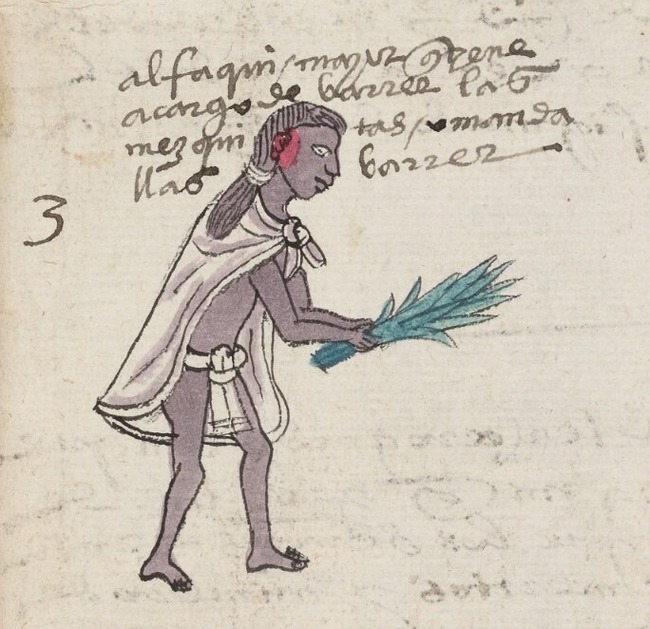 alfaqui / mayor q tiene
a cargo de barrer las
mezqui tas / o manda
llas barrer
3